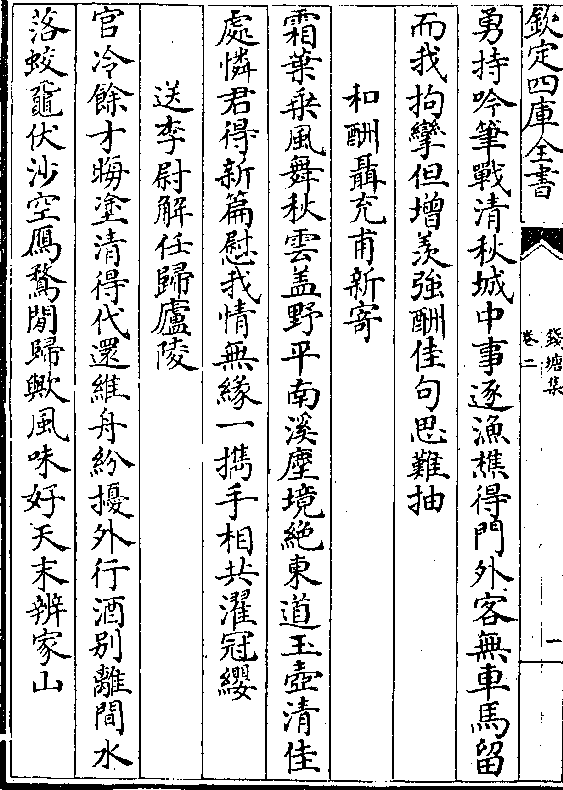 欽定四庫全書
錢塘集
卷二
一
勇持吟筆戰清秋城中事逐漁樵得門外客無車馬留
而我拘攣但增羨強酬佳句思難抽
和酬聶充甫新寄
霜葉乘風舞秋雲盖野平南溪塵境絶東道玉壺清佳
處憐君得新篇慰我情無緣一攜手相共濯冠纓
送李尉解任歸廬陵
官冷餘才晦塗清得代還維舟紛擾外行酒别離間水
落蛟鼉伏沙空鴈鶩閒歸歟風味好天末辨家山